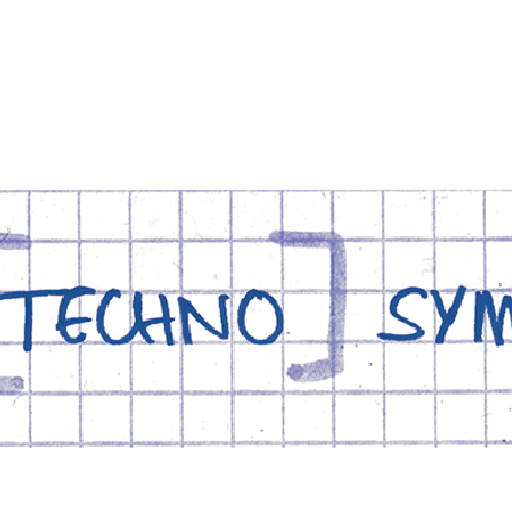 [TECHNO] SYM